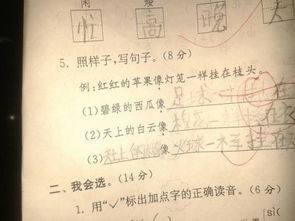 忙 高 晚
5. 照样子，写句子。(8 分)
例：红红的苹果像灯笼一样挂在枝头。
(1) 碧绿的西瓜像足球一样
(2) 天上的白云像棉花一样
(3) 像火球一样挂在天
二、我会选。(14 分)
1. 用“√”标出加点字的正确读音。(6 分)